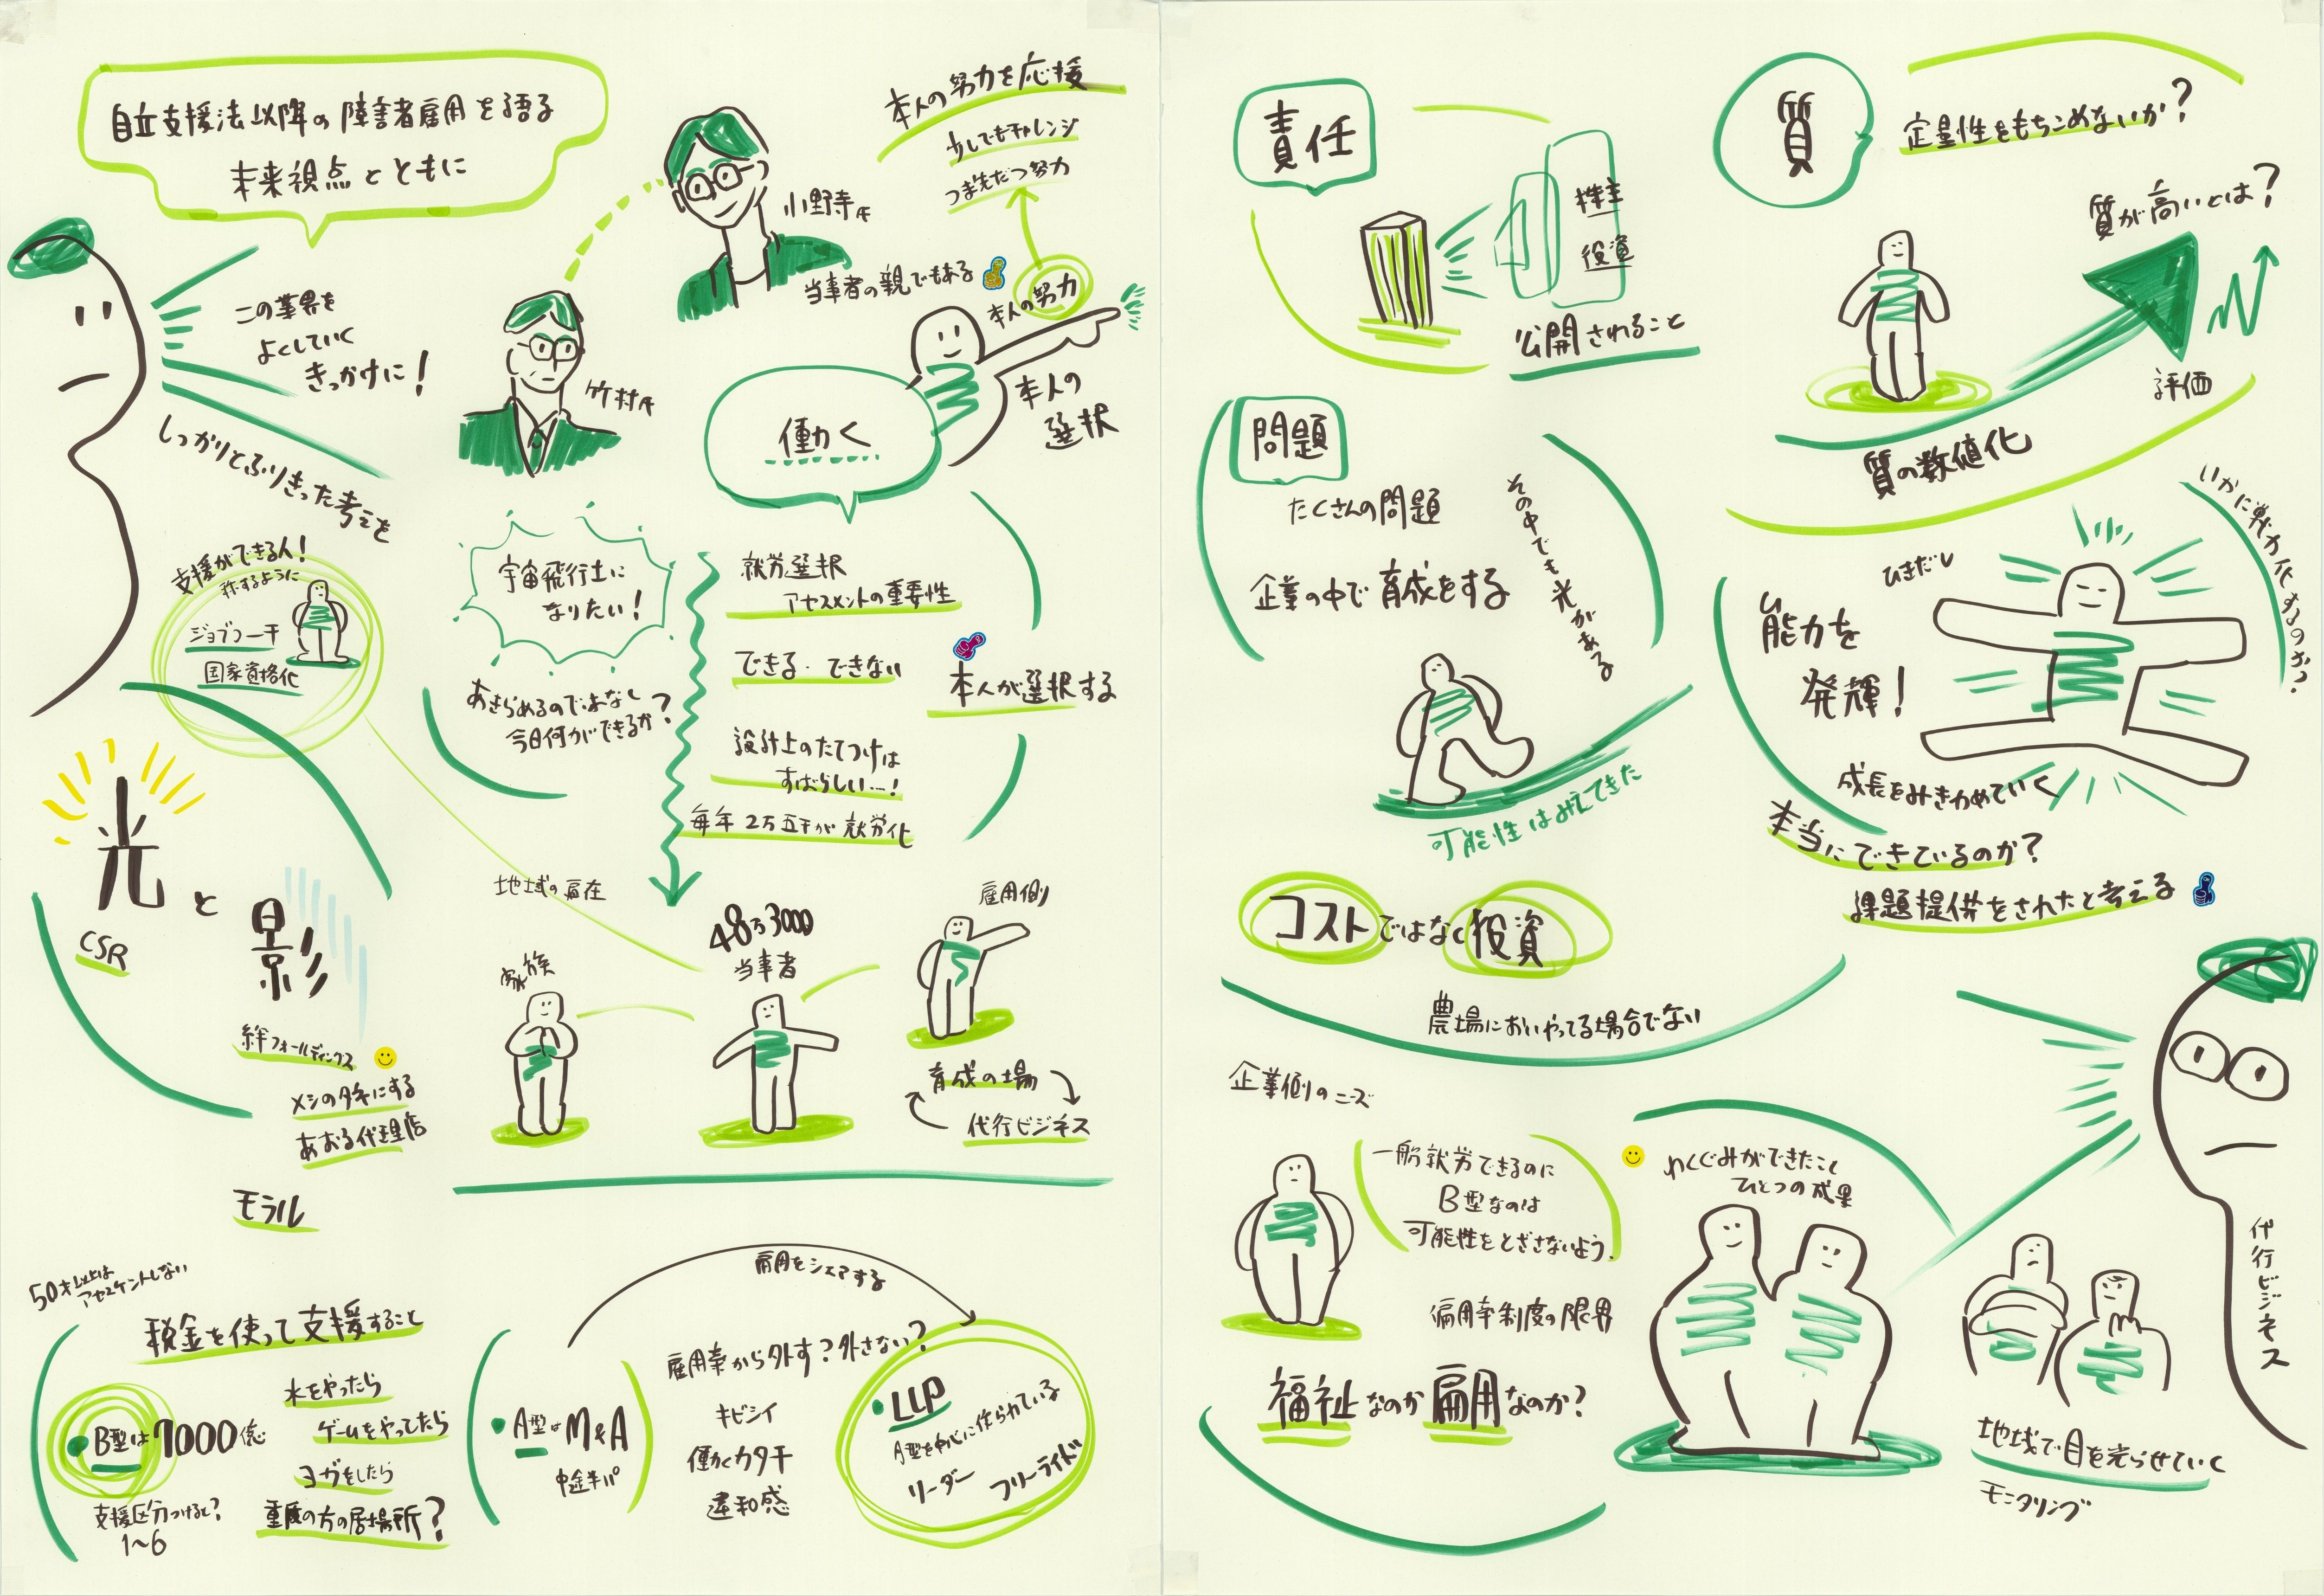 自立支援法以降の障害者雇用を語る
未来視点とともに
この業界を
よくしていく
きっかけに！
しっかりとふりきった考えを
支援ができる人！
称するように
ジョブコーチ
国家資格化
光と影
CSR
絆フォールディングス
メシの タネにする
あおる代理店
モラル
小野寺氏
竹村氏
当事者の親でもある
本人の努力を応援
少しでもチャレンジ
つま先だつ努力
本人の努力
本人の
選択
働く
宇宙飛行士に
なりたい！
あきらめるのではなく
今日何ができるか？
就労選択
アセスメントの重要性
できる・できない
本人が選択する
設計上のたてつけは
すばらしい…！
毎年 2万五千が 就労化
地域の偏在
家族
48万3000
当事者
雇用側
育成の場
代行ビジネス
50才以上は
アセスメントしない
税金を使って支援すること
・B型は7000億
支援区分つけると？
1〜6
水をやったら
ゲームをやってたら
ヨガをしたら
重度の方の居場所？
・A型はM&A
中途半パ
雇用をシェアする
雇用率から外す？外さない？
キビシイ
働くカタチ
違和感
・LLP
A型を中心に作られている
リーダー
フリーライド
責任
株主
役員
公開されること
質
定量性をもちこめないか？
質が高いとは？
評価
質の数値化
問題
たくさんの問題
企業の中で育成をする
その中でも光がある
可能性はみえてきた
いかに戦力化するのか？
ひきだし
能力を
発揮！
成長をみきわめていく
本当にできているのか？
課題提供をされたと考える
コストではなく投資
農場においやってる場合でない
企業側のニーズ
一般就労できるのに
B型なのは
可能性をとざさないよう.
雇用率制度の限界
福祉なのか雇用なのか？
わくぐみができたこと
ひとつの成果
代行ビジネス
地域で目を光らせていく
モニタリング